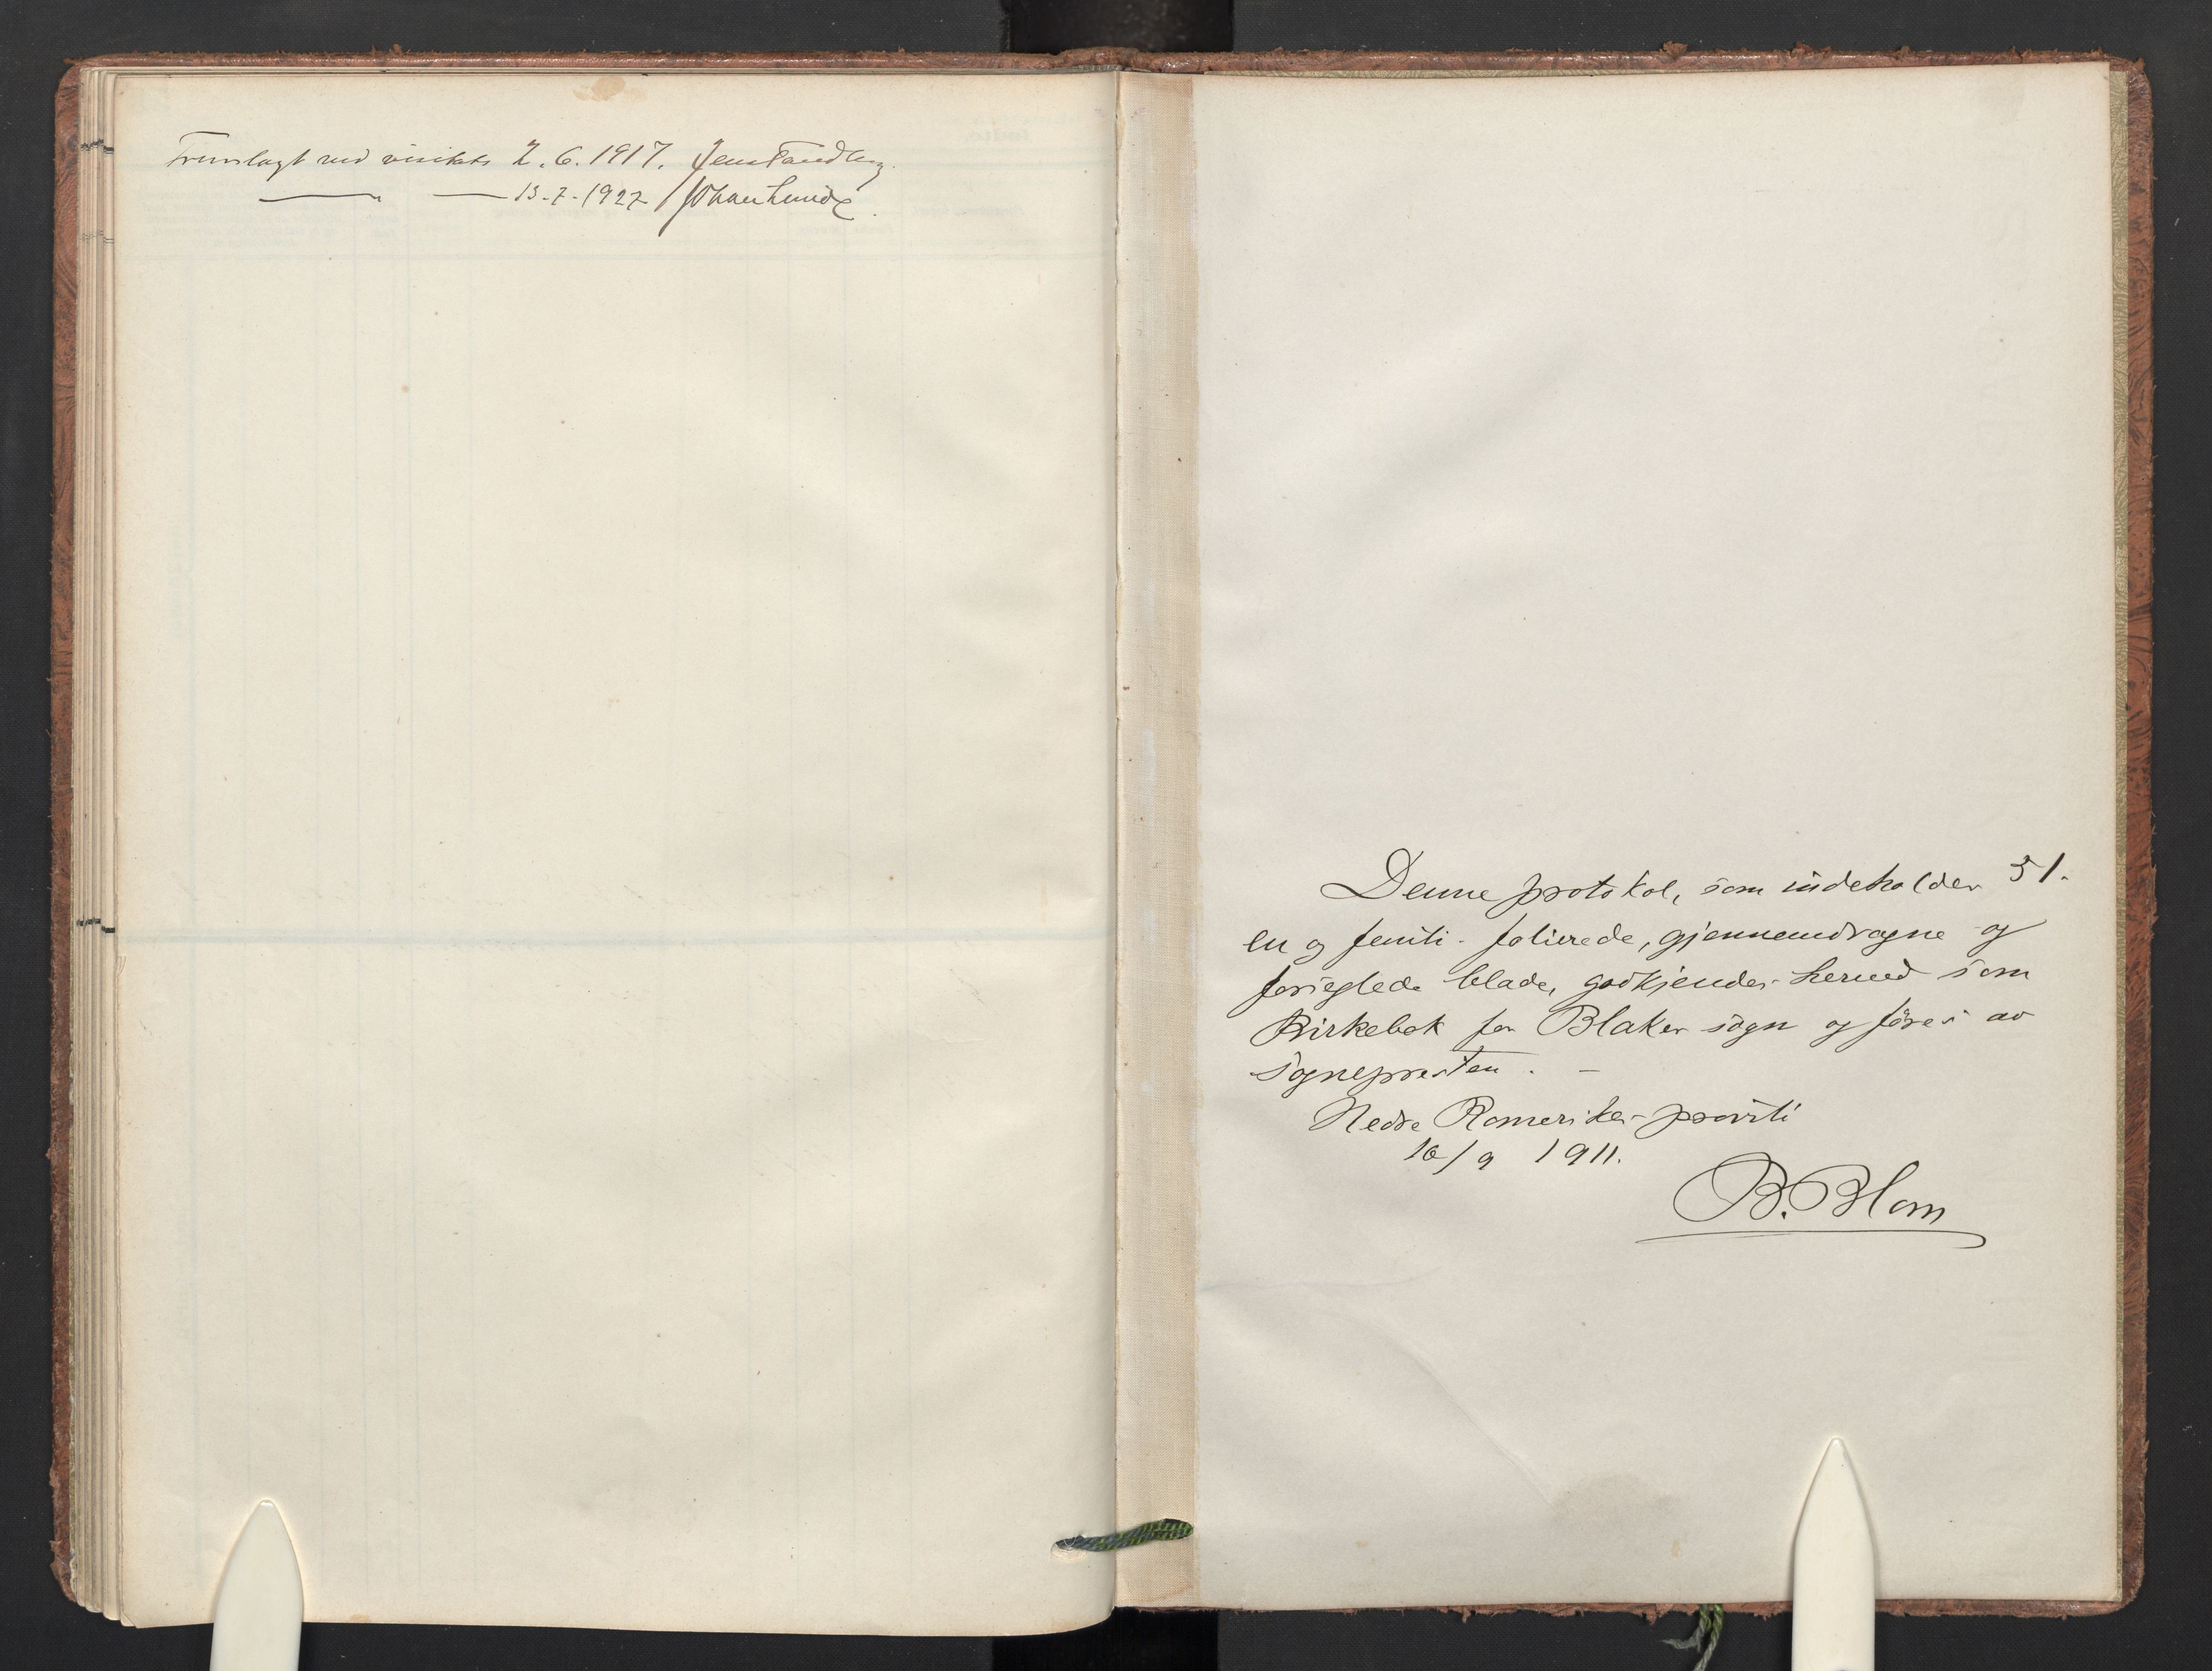 Fremlagt ved visitats 2.6.1917. Jens Tandberg.
— " — 13-7-1927 Johan Lunde.
Denne protokol, som indeholder 51.
en og femti - folierede, gjennemdragne og
forseglede blade, godkjendes herved som
Kirkebok for Blaker sogn og føres av
sognepresten. -
Nedre Romerikes provsti
16/9 1911.
B. Blom